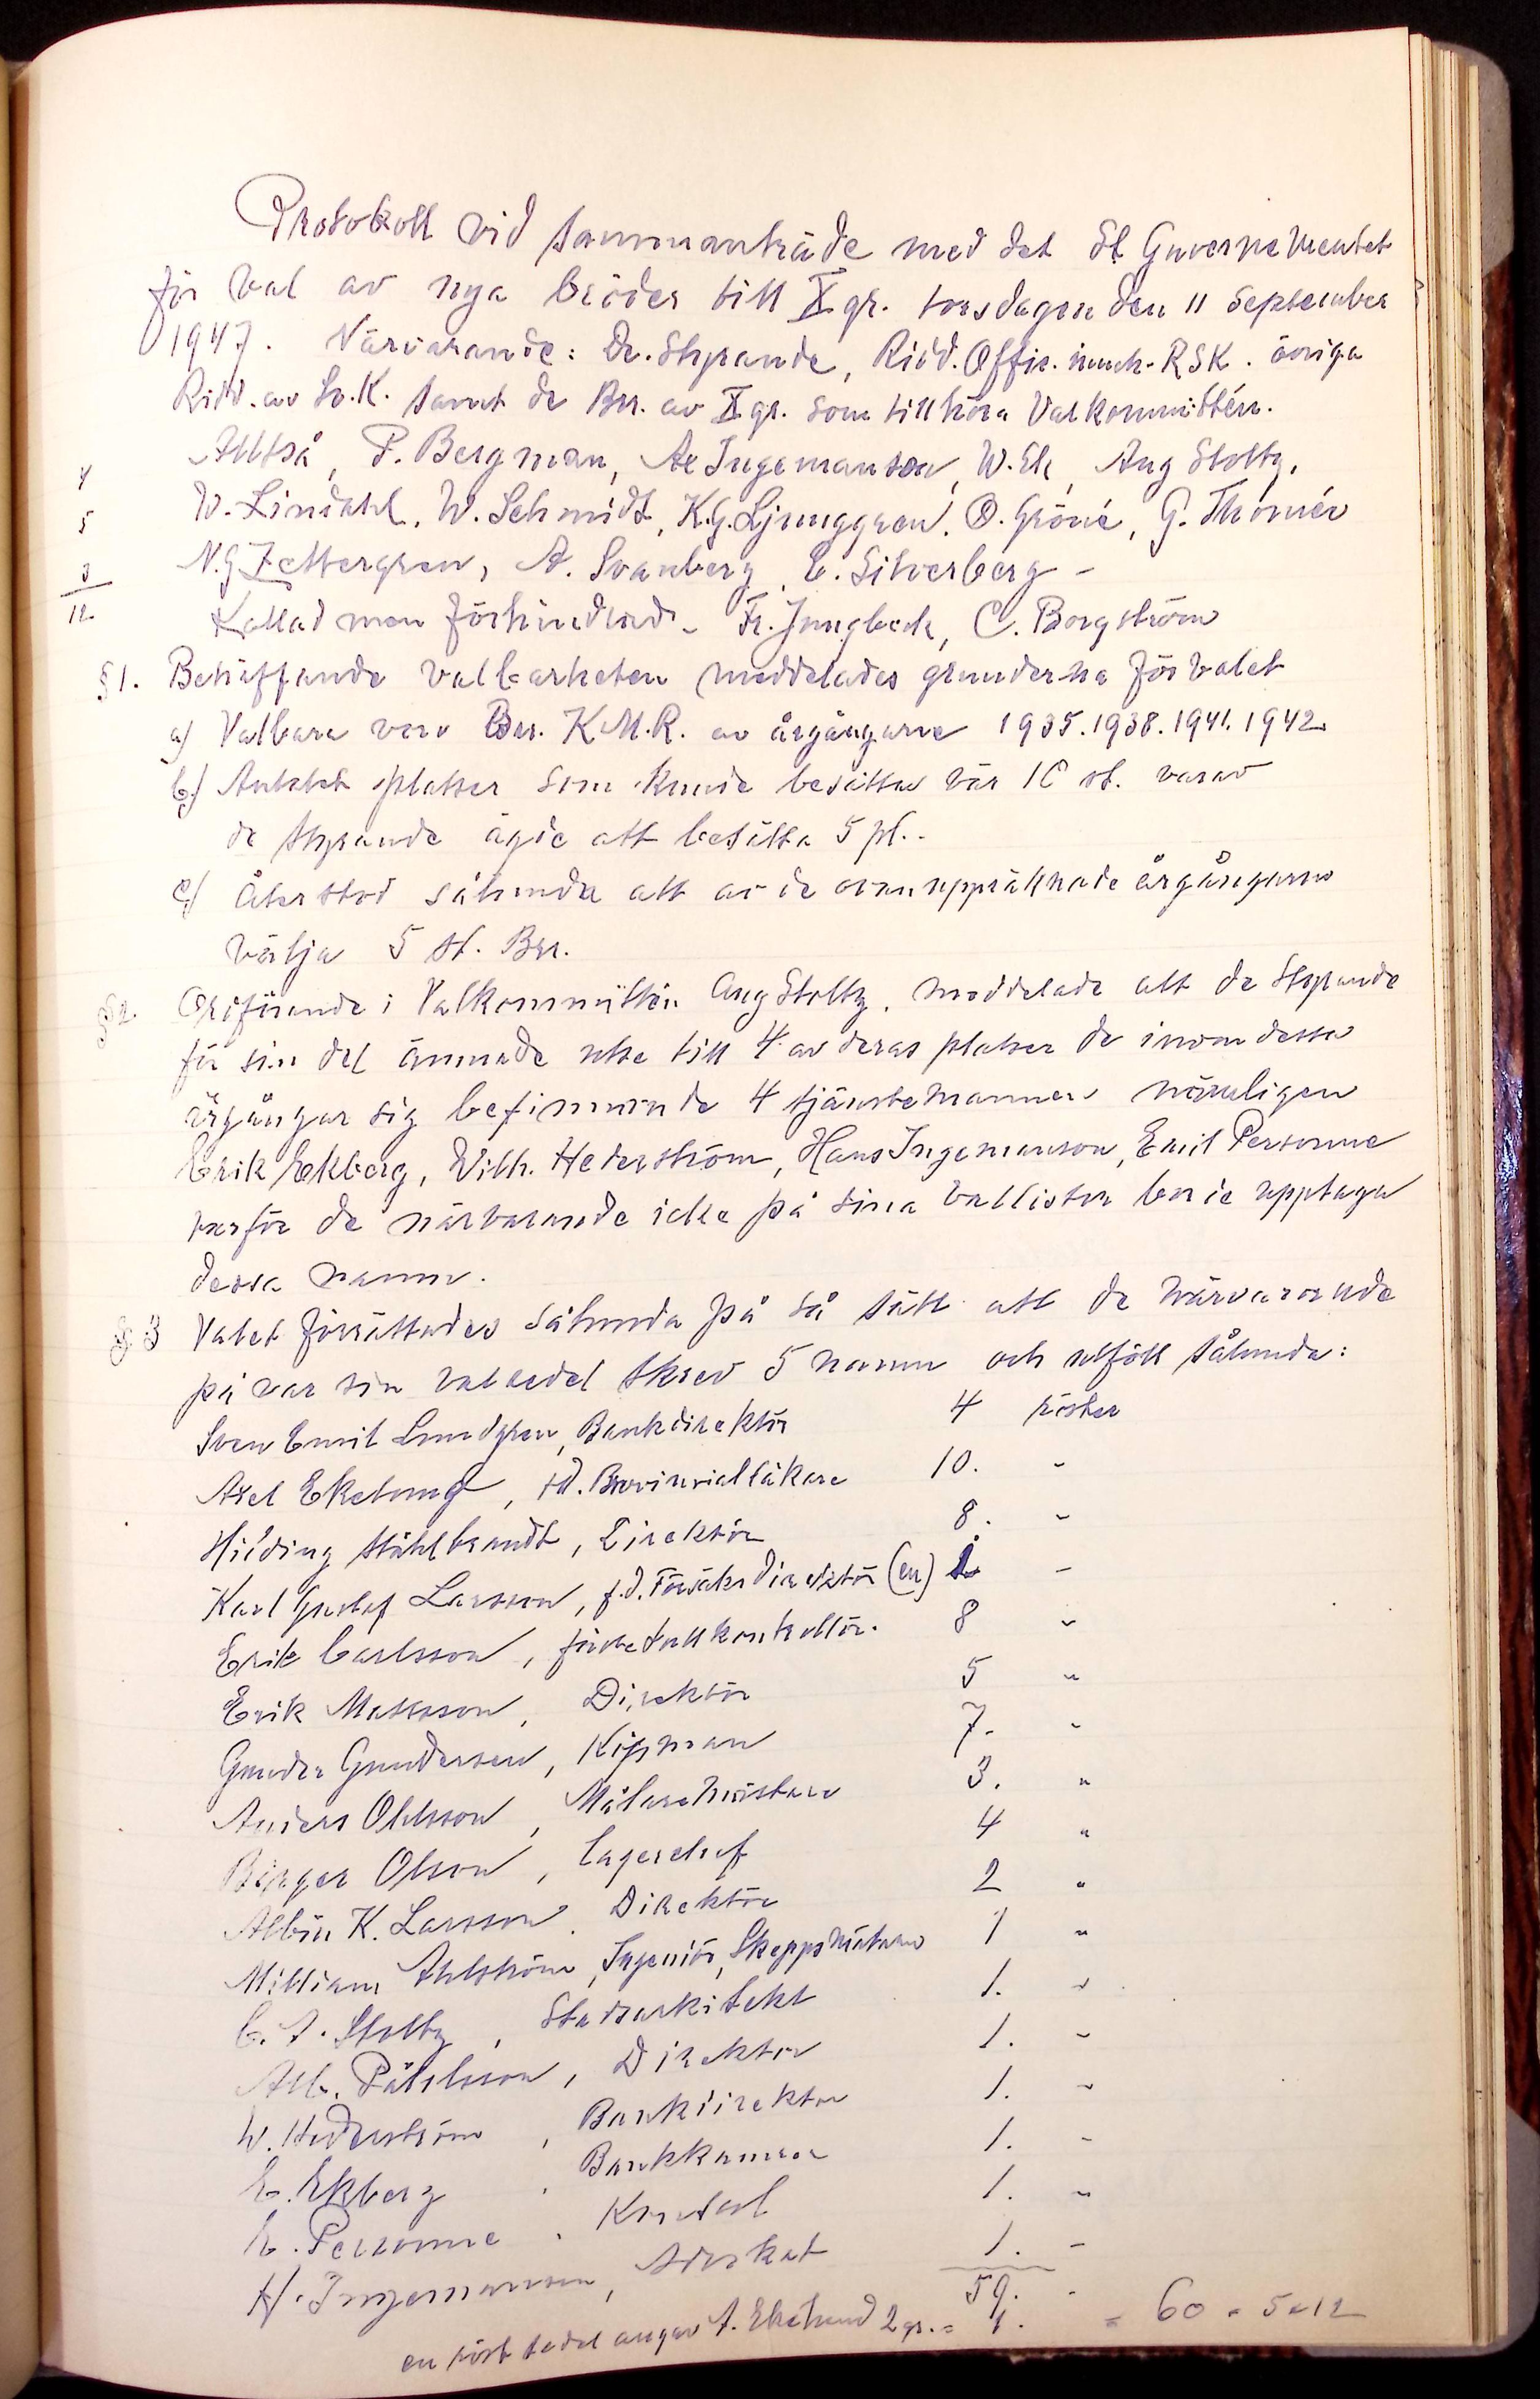 Protokoll vid sammanträde med det St Guvernementet
för val av nya bröder till X gr. torsdagen den 11 September
1947. Närvarande: De. Styrande, Ridd. Offic. RSK. övriga
Ridd. av Sv.K. samt de Brr. av X gr. som tillhöra Valkommittén.
Alltså, P. Bergman, Ax Ingemanson, W. Ek, Aug Stoltz,
4
W. Lindahl, W. Schmidt, K.G. Ljunggren, O. Gröné, G. Thornér
5
N.G Zettergren, A. Svanberg, E. Silverberg -
3
12
Kallad men förhindrad - Fr. Jungbeck, C. Borgström
§1. Beträffande valbarheten meddelades grunderna för valet
a) Valbara voro Brr. K.M.R. av årgångarne 1935. 1938. 1941. 1942.
b) Antalet platser som kunde besättas var 10 st. varav
de styrande ägde att besätta 5 pl..
c) Återstod sålunda att av de ovanuppräknade årgångarna
välja 5 st. Brr.
§2. Ordförande i Valkommittén Aug Stoltz, meddelade att de Styrande
för sin del ämnade utse till 4 av deras platser de inom dessa
årgångar sig befinnande 4 tjänstemannen nämligen
Erik Ekberg, Wilh. Hederström, Hans Ingemanson, Emil Personne
varför de närvarande icke på sina vallistor borde upptaga
dessa namn.
§3 Valet förrättades sålunda på så sätt att de närvarande
på var sin valsedel skrev 5 namn och utföll sålunda:
Sven Emil Lundgren, Bankdirektör 4 röster
Axel Ekelund, f.d. Provinsialläkare 10. "
Hilding Ståhlbrandt, Direktör 8. "
Karl Gustaf Larsson, f.d. Försäkr Direktör (en) 1 "
Erik Carlsson, förste tullkontrollör. 8 "
Erik Matsson, Direktör 5 "
Gunder Gundersen, Köpman 7. "
Anders Ohlsson, Målaremästare 3. "
Birger Olson, Lagerchef 4 "
Albin K. Larsson, Direktör 2 "
William Ahlström, Ingeniör, Skeppsmätare 1 "
C. A. Stoltz, Stadsarkitekt 1. "
Alb. Påhlsson, Direktör 1. "
W. Hederström, Bankdirektör 1. "
E. Ekberg, Bankkamrer 1. "
E. Personne, Konsul 1. "
H. Ingemanson, Advokat 1. "
59. "
en röst sedel angav A. Ekelund 2 gr. = 1. = 60 = 5×12